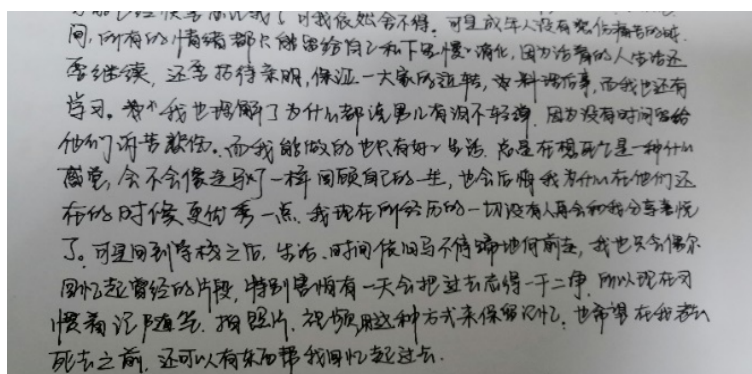 我依然舍不得。可是成年人没有悲伤痛苦的时
间,所有的情绪都只能留给自己私下里慢慢消化,因为活着的人生活还
要继续,还要招待亲朋,保证一大家的运转,料理后事,而我也还有
学习。我也理解了为什么都说男儿有泪不轻弹,因为没有时间留给
他们诉苦歇伤。而我能做的也只有好好生活。总是在想死亡是一种什么
感觉,会不会像走马灯一样回顾自己的一生,也会后悔我为什么在他们还
在的时候更优秀一点。我现在所经历的一切没有人再会和我分享喜悦
了。可是回到学校之后,生活、时间依旧马不停蹄地向前走,我也只会偶尔
回忆起曾经的片段,特别害怕有一天会把过去忘得一干二净,所以现在习
惯着记随笔、拍照片、视频用这种方式来保留记忆,也希望在我老
死去之前,还可以有东西帮我回忆起过去.